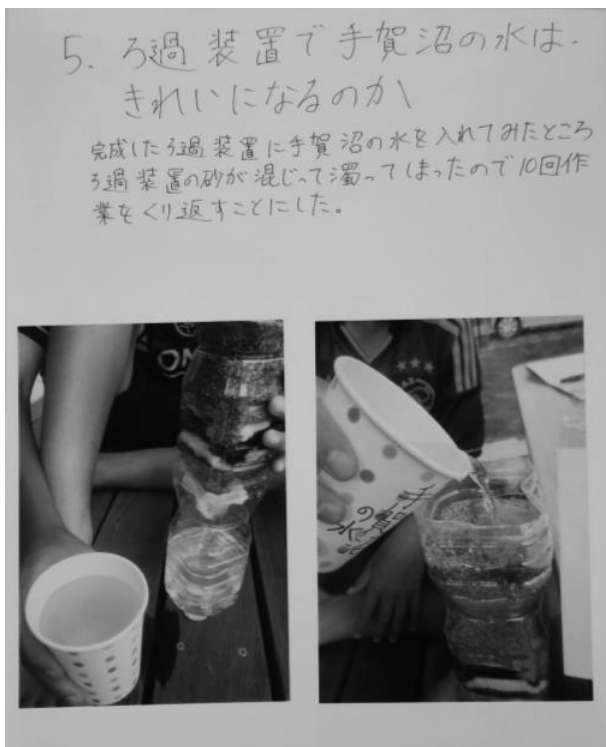 5、ろ過装置で手賀沼の水は、
きれいになるのか
完成したろ過装置に手賀沼の水を入れてみたところ
ろ過装置の砂が混じって濁ってしまったので10回作
業をくり返すことにした。
手賀沼
の水